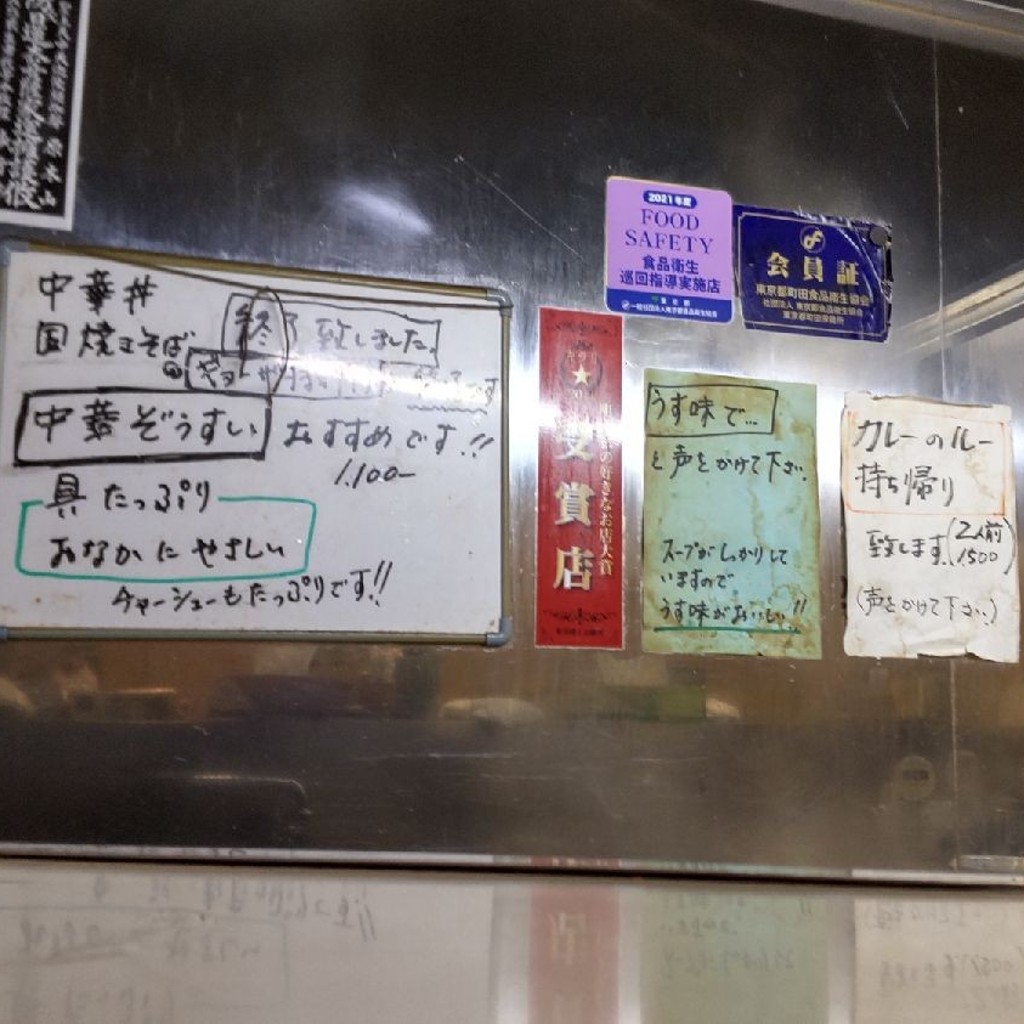 中華丼
固焼きそば
終了致しました。
中華ぞうすい
おすすめです!!
1.100-
具たっぷり
おなかにやさしい
チャーシューもたっぷりです!!
受賞店
2021年度
FOOD
SAFETY
食品衛生
巡回指導実施店
会員証
東京都町田食品衛生協会
うす味で…
と声をかけて下さい
スープがしっかりして
いますので
うす味がおいしい!!
カレーのルー
持ち帰り
致します。(2人前
1500)
(声をかけて下さい)